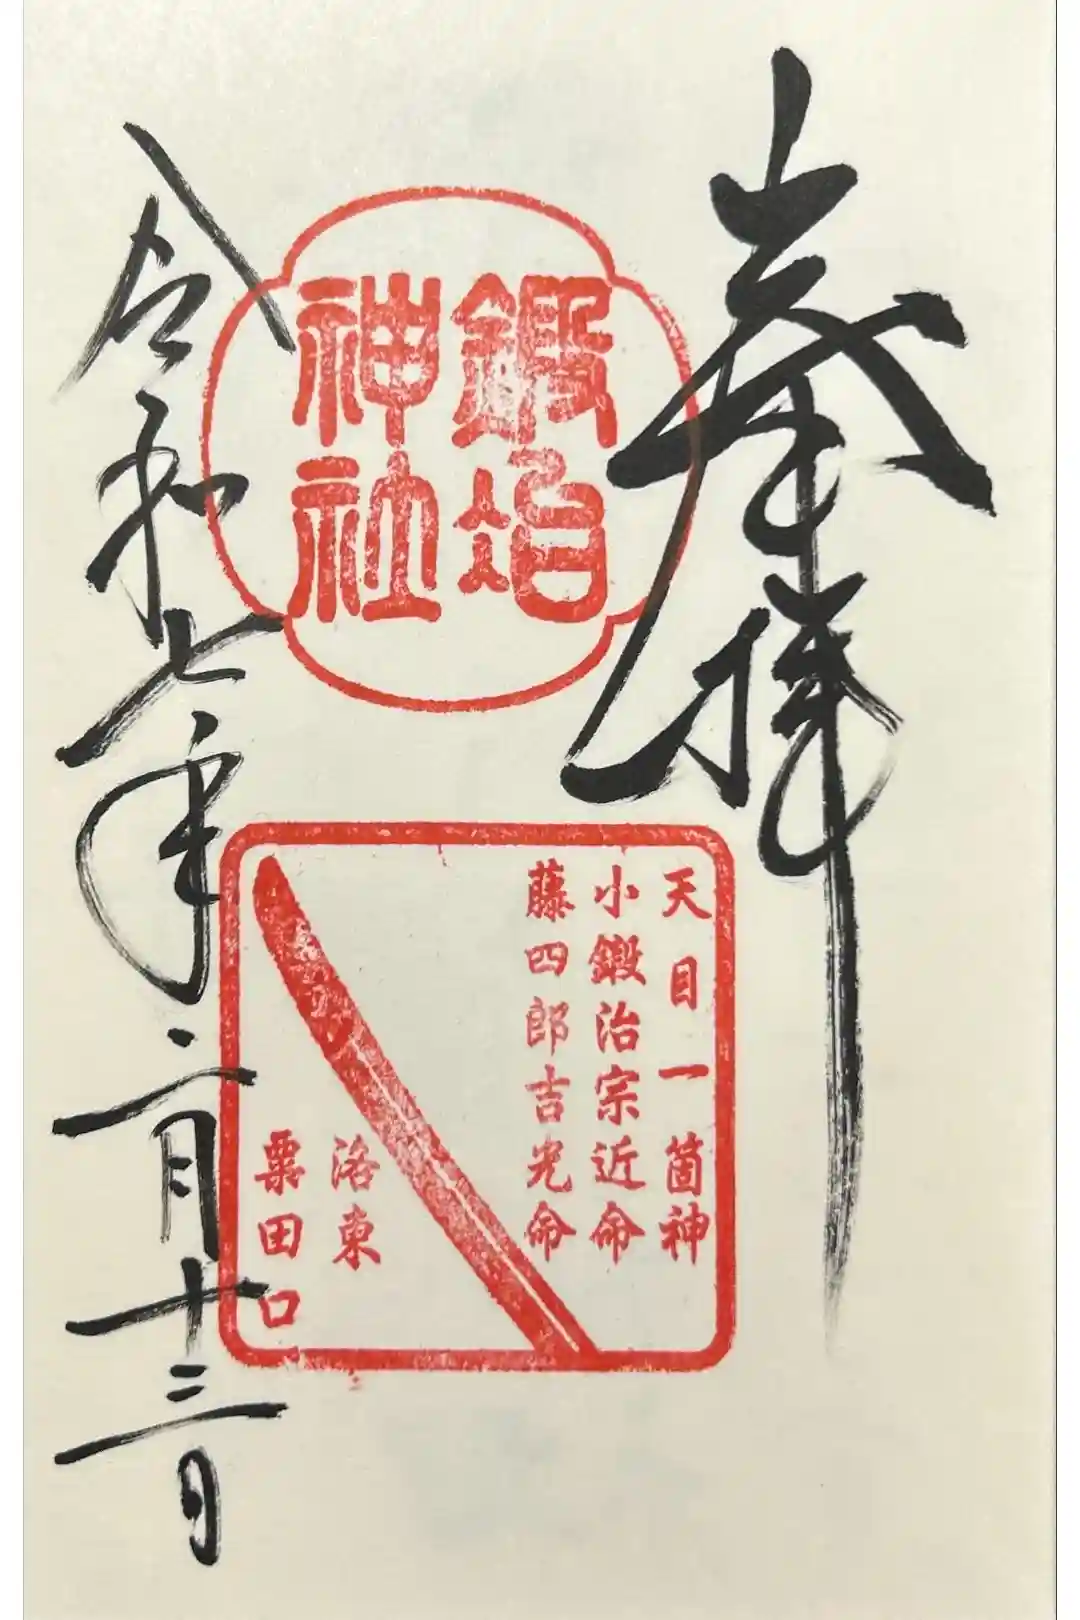 奉拝
鍛冶
神社
天目一箇神
小鍛治宗近命
藤四郎吉光命
洛東
粟田口
令和七年二月十三日